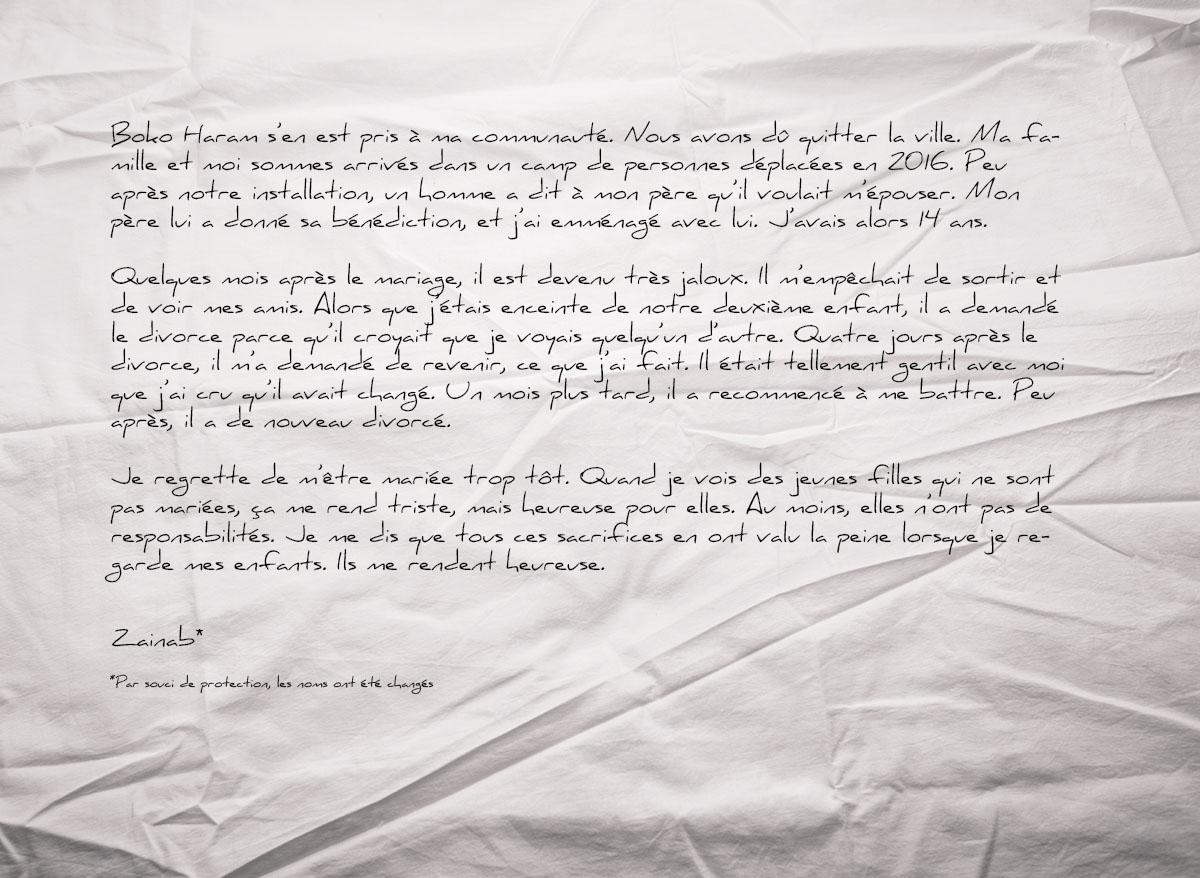 Boko Haram s'en est pris à ma communauté. Nous avons dû quitter la ville. Ma fa-
mille et moi sommes arrivés dans un camp de personnes déplacées en 2016. Peu
après notre installation, un homme a dit à mon père qu'il voulait m'épouser. Mon
père lui a donné sa bénédiction, et j'ai emménagé avec lui. J'avais alors 14 ans.
Quelques mois après le mariage, il est devenu très jaloux. Il m'empêchait de sortir et
de voir mes amis. Alors que j'étais enceinte de notre deuxième enfant, il a demandé
le divorce parce qu'il croyait que je voyais quelqu'un d'autre. Quatre jours après le
divorce, il m'a demandé de revenir, ce que j'ai fait. Il était tellement gentil avec moi
que j'ai cru qu'il avait changé. Un mois plus tard, il a recommencé à me battre. Peu
après, il a de nouveau divorcé.
Je regrette de m'être mariée trop tôt. Quand je vois des jeunes filles qui ne sont
pas mariées, ça me rend triste, mais heureuse pour elles. Au moins, elles n'ont pas de
responsabilités. Je me dis que tous ces sacrifices en ont valu la peine lorsque je re-
garde mes enfants. Ils me rendent heureuse.
Zainab*
*Par souci de protection, les noms ont été changés